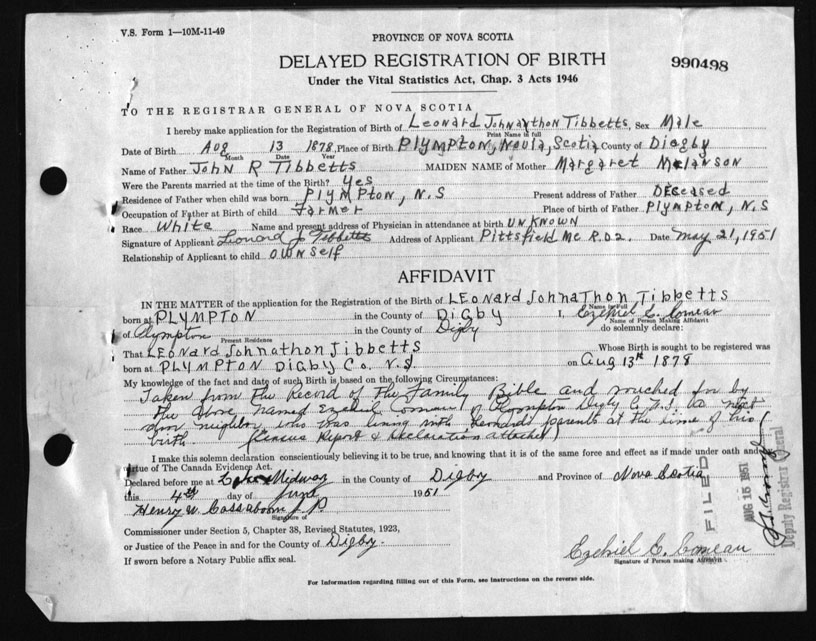 V.S. Form 1—10M-11-49
PROVINCE OF NOVA SCOTIA
DELAYED REGISTRATION OF BIRTH
990498
Under the Vital Statistics Act, Chap. 3 Acts 1946
TO THE REGISTRAR GENERAL OF NOVA SCOTIA
I hereby make application for the Registration of Birth of Leonard Johnathon Tibbetts, Sex Male
Print Name in full
Date of Birth Aug 13 1878, Place of Birth PLYMPTON, Nova, Scotia County of Digby
Month Date Year
Name of Father John R Tibbetts MAIDEN NAME of Mother Margaret Melanson
Were the Parents married at the time of the Birth? Yes
Residence of Father when child was born PLYMPTON, N.S Present address of Father DEceased
Occupation of Father at Birth of child Farmer Place of birth of Father PLYMPTON, N.S
Race White Name and present address of Physician in attendance at birth UNKNOWN
Signature of Applicant Leonard J Tibbetts Address of Applicant Pittsfield Me R.D2. Date May 21, 1951
Relationship of Applicant to child OWNself
AFFIDAVIT
IN THE MATTER of the application for the Registration of the Birth of LEONard JohnaThon Tibbetts
Name in Full
born at PLYMPTON in the County of DIGBY I, Ezekiel E. Comeau
Name of Person Making Affidavit
of Plympton in the County of Digby do solemnly declare:
Present Residence
That LEONard Johnathon Tibbetts Whose Birth is sought to be registered was
born at PLYMPTON DIGBY Co. N.S on Aug 13th 1878
My knowledge of the fact and date of such Birth is based on the following Circumstances:
Taken from The Record of The Family Bible and vouched for by
The above named Ezekiel Comeau of Plympton Digby Co N.S. as next
door neighbor who was living with Leonards parents at the time of his
birth. (Census Report & Declaration attached)
I make this solemn declaration conscientiously believing it to be true, and knowing that it is of the same force and effect as if made under oath and
virtue of The Canada Evidence Act.
Declared before me at Midway in the County of Digby and Province of Nova Scotia
this 4th day of June 1951
Henry W. Cossaboom J P
Signature of
Commissioner under Section 5, Chapter 38, Revised Statutes, 1923,
or Justice of the Peace in and for the County of Digby.
If sworn before a Notary Public affix seal.
Ezekiel E. Comeau
Signature of Person making Affidavit
FILED
AUG 15 1951
Deputy Registrar General
For Information regarding filling out of this Form, see instructions on the reverse side.